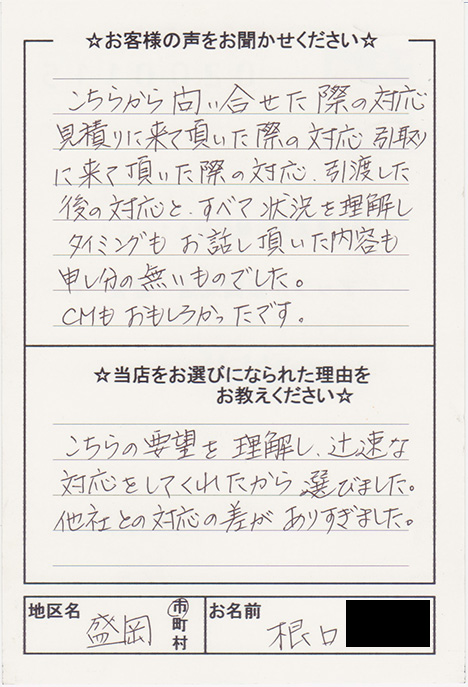 ☆お客様の声をお聞かせください☆
こちらから問い合せた際の対応
見積りに来て頂いた際の対応 引取り
に来て頂いた際の対応、引渡した
後の対応と、すべて状況を理解し
タイミングも お話し頂いた内容も
申し分の無いものでした。
CMもおもしろかったです。
☆当店をお選びになられた理由を
お教えください☆
こちらの要望を理解し、辻速な
対応をしてくれたから選びました。
他社との対応の差がありすぎました。
地区名 盛岡 市町村 お名前 根口